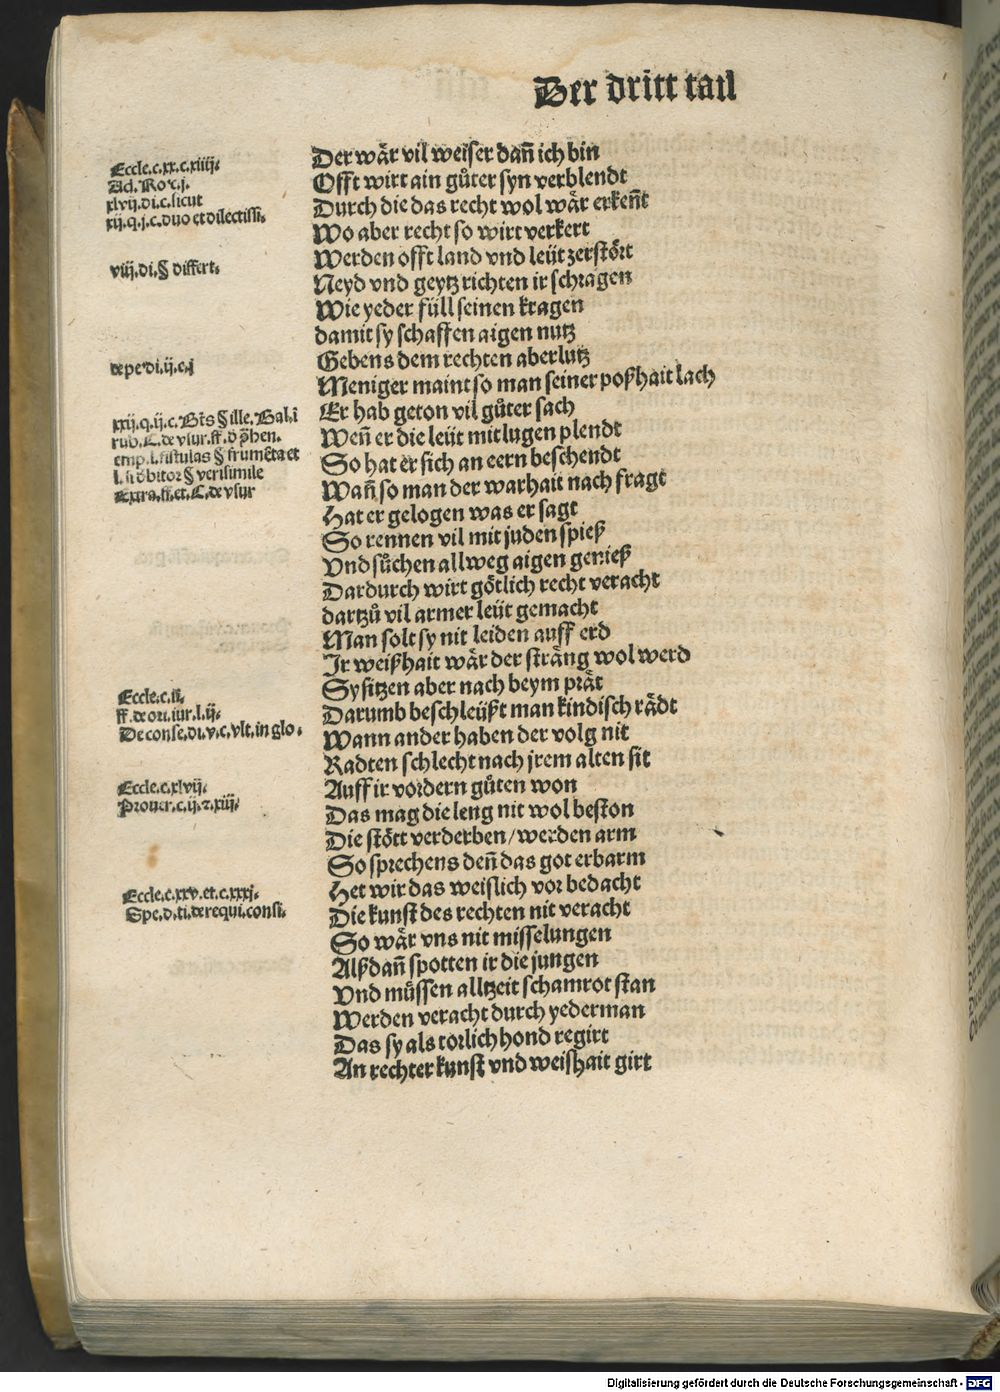 Der dritt tail
Der wår vil weiser dañ ich bin
Offt wirt ain gůter syn verblendt
Durch die das recht wol wår erkeñt
Wo aber recht so wirt verkert
Werden offt land vnd leüt zerstört
Neyd vnd geytz richten ir schragen
Wie yeder füll seinen kragen
damit sy schaffen aigen nutz
Gebens dem rechten aberlutz
Meniger maint so man seiner poßhait lach
Er hab geton vil gůter sach
Weñ er die leüt mit lugen plendt
So hat er sich an eern beschendt
Wañ so man der warhait nach fragt
Hat er gelogen was er sagt
So rennen vil mit juden spieß
Vnd sůchen allweg aigen genieß
Dardurch wirt götlich recht veracht
dartzů vil armer leüt gemacht
Man solt sy nit leiden auff erd
Ir weißhait wår der sträng wol werd
Sy sitzen aber nach beym prät
Darumb beschleüßt man kindisch rädt
Wann ander haben der volg nit
Radten schlecht nach jrem alten sit
Auff ir vordern gůten won
Das mag die leng nit wol beston
Die stött verderben/werden arm
So sprechens deñ das got erbarm
Het wir das weislich vor bedacht
Die kunst des rechten nit veracht
So wår vns nit misselungen
Alß dañ spotten ir die jungen
Vnd müssen alltzeit schamrot stan
Werden veracht durch yederman
Das sy als torlich hond regirt
An rechter kunst vnd weishait girt
Eccle.c.xx.c.xiiij.
Ad.Ro.c.j.
xlvij.di.c.sicut
xij.q.j.c.duo et dilectissi.
viij.di.§ differt.
de pe.di.ij.c.j
xxij.q.ij.c. §ille.Bal.i
rub.C.de vsur.ff.
emp.l.fistulas § frumēta et
l. § verisimile
Extra.ff.et.C.de vsur
Eccle.c.ij.
ff.de ori.iur.l.ij.
De conse.di.v.c.vlt.in glo.
Eccle.c.xlvij.
Prouer.c.ij.z.xiij.
Eccle.c.xxv.et.c.xxxj.
Spe.d.ti.de requi.consi.
Digitalisierung gefördert durch die Deutsche Forschungsgemeinschaft - DFG